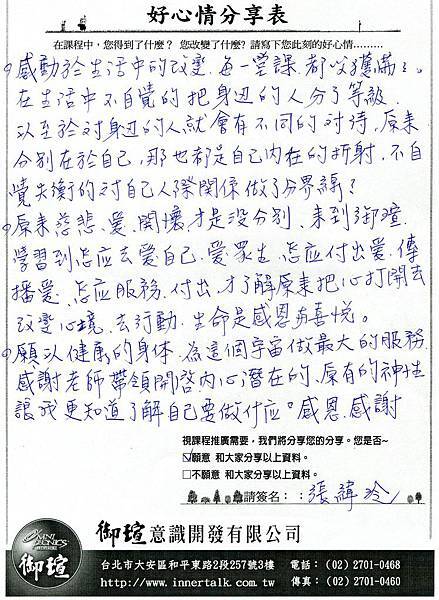 好心情分享表
在課程中，您得到了什麼？ 您改變了什麼？ 請寫下您此刻的好心情………
感動於生活中的改變，每一堂課，都收獲滿滿。
在生活中不自覺的把身边的人分了等級，
以至於对身边的人就會有不同的对待，原來
分別在於自己，那也都是自己内在的折射，不自
覺失衡的对自己人際関係做了分界線？
原來慈悲、愛、関懷才是没分別，來到御瑄，
學習到怎应去愛自己，愛眾生，怎应付出愛，傳
播愛，怎应服務，付出，才了解原來把心打開去
改变心境，去行動，生命是感恩与喜悦。
願以健康的身体，為這個宇宙做最大的服務，
感謝老師帶領開啓內心潛在的、原有的神性
讓我更知道了解自己要做什应。感恩，感謝
視課程推廣需要，我們將分享您的分享。您是否~
☑願意 和大家分享以上資料。
□不願意 和大家分享以上資料。
請簽名：：張緯玲
御瑄意識開發有限公司
御瑄
台北市大安區和平東路2段257號3樓 電話：(02) 2701-0468
http://www.innertalk.com.tw 傳真：(02) 2701-0460